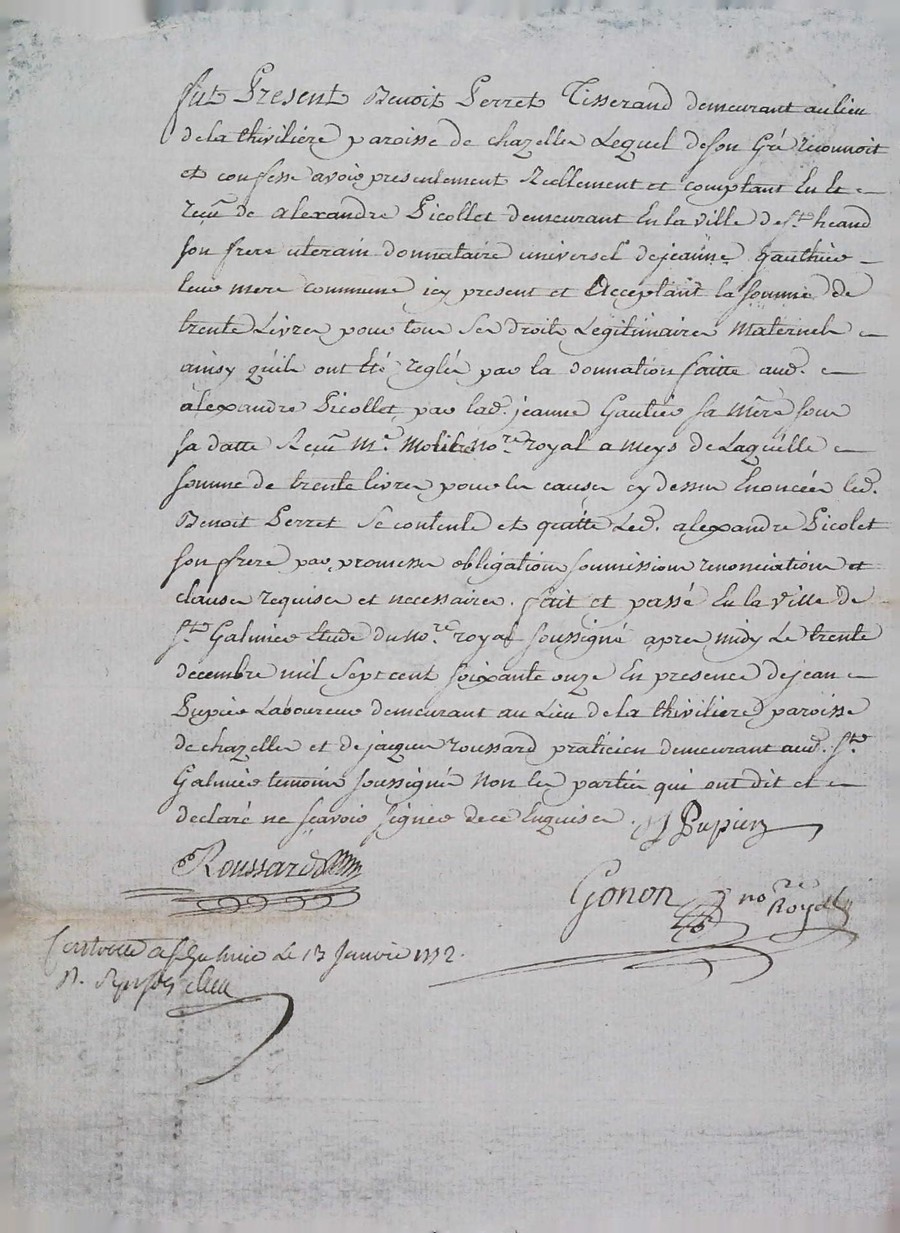 fut Present Benoit Perret Tisserand demeurant au lieu
de la thiviliere paroisse de chazelle Lequel de son Gré reconnoit
et confesse avoir presentement Reellement et comptant Eu et
reçu de alexandre Picollet demeurant En la ville de st heand
son frere uterain donnataire universel de jeanne Gauthier
leur mere commune icy present et acceptant la somme de
trente Livres pour tous ses droits Legitimaires Maternels
ainsy qu'ils ont Eté reglés par la donnation faitte aud.
alexandre Picollet par lad. jeanne Gautier sa mere sous
sa datte Reçu Me. no.re royal a meys de Laquelle
somme de trente livres pour les causes cy dessus Enoncées led.
Benoit Perret se contente et quitte Led. alexandre Picolet
son frere par promesses obligations soumissions renonciations et
clauses requises et necessaires. fait et passé En la ville de
st Galmier Etude du no.re royal soussigné apres midy Le trente
decembre mil sept cent soixante onze En presence de jean
Pupier Laboureur demeurant au Lieu de la thiviliere paroisse
de chazelles et de jacques roussard praticien demeurant aud. st.
Galmier temoins soussignés Non les parties qui ont dit et
declaré ne sçavoir signer de ce Enquises. J Pupier
Roussard
Gonon no re Royal
Controllé a st Galmier Le 13 Janvier 1772.